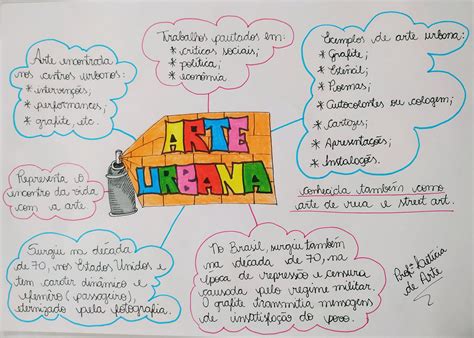 Arte encontrada
nos centros urbanos:
* intervenções;
* performances;
* grafite, etc.
Trabalhos pautados em:
* críticas sociais;
* política;
* economia
Exemplos de arte urbana:
* Grafite;
* Estêncil;
* Poemas;
* Autocolantes ou colagem;
* Cartazes;
* Apresentações;
* Instalações.
ARTE
URBANA
Representa o
encontro da vida
com a arte.
conhecida também como
arte de rua e street art.
Surgiu na década
de 70, nos Estados Unidos e
tem caráter dinâmico e
efêmero (passageiro),
eternizado pela fotografia.
No Brasil, surgiu também
na década de 70, na
época de repressão e censura
causada pelo regime militar.
O grafite transmitia mensagens
de insatisfação do povo.
Profª Letícia
de Arte